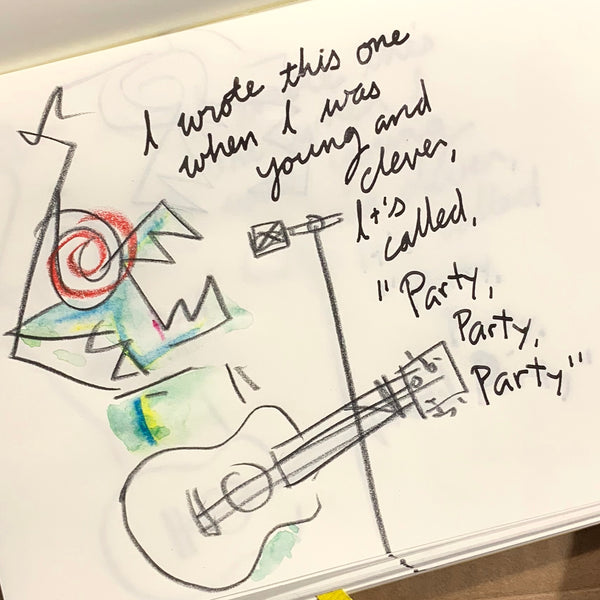 I wrote this one
when I was
young and
clever,
It's
called,
"Party,
Party,
Party"